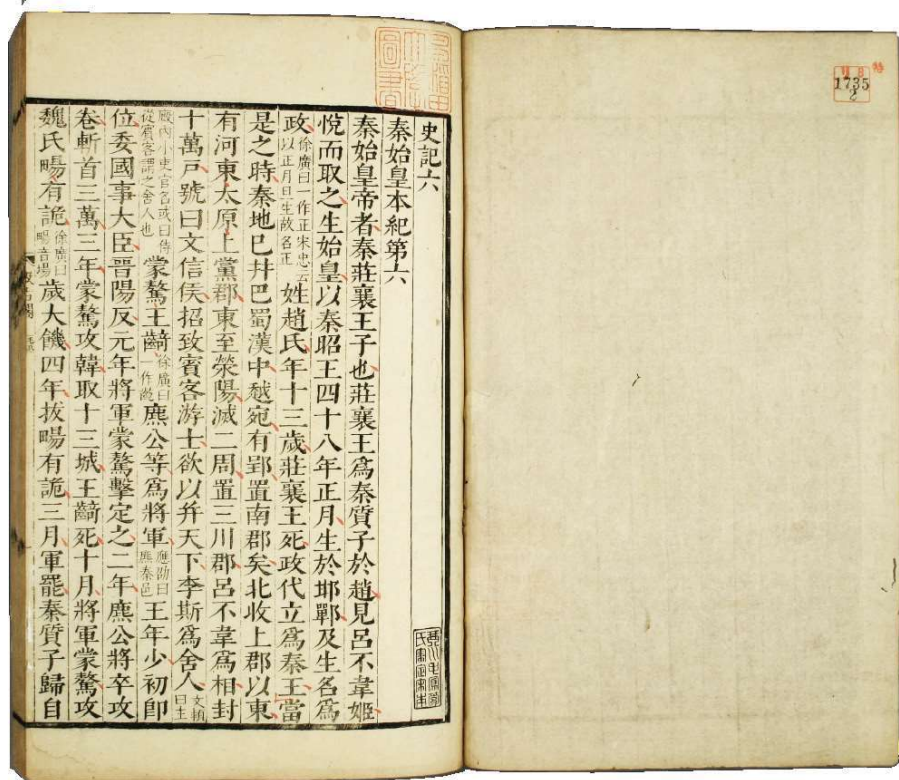 特
1735
2
史記六
秦始皇本紀第六
秦始皇帝者秦莊襄王子也莊襄王爲秦質子於趙見呂不韋姬
悅而取之生始皇以秦昭王四十八年正月生於邯鄲及生名爲
政徐廣曰一作正宋忠云以正月旦生故名正姓趙氏年十三歲莊襄王死政代立爲秦王當
是之時秦地已幷巴蜀漢中越宛有郢置南郡矣北收上郡以東
有河東太原上黨郡東至滎陽滅二周置三川郡呂不韋爲相封
十萬戶號曰文信侯招致賓客游士欲以幷天下李斯爲舍人文穎曰主
廄內小吏官名或曰侍從賓客謂之舍人也蒙驁王齮徐廣曰一作齕麃公等爲將軍應劭曰麃秦邑王年少初卽
位委國事大臣晉陽反元年將軍蒙驁擊定之二年麃公將卒攻
卷斬首三萬三年蒙驁攻韓取十三城王齮死十月將軍蒙驁攻
魏氏暘有詭徐廣曰暘音場歲大饑四年拔暘有詭三月軍罷秦質子歸自